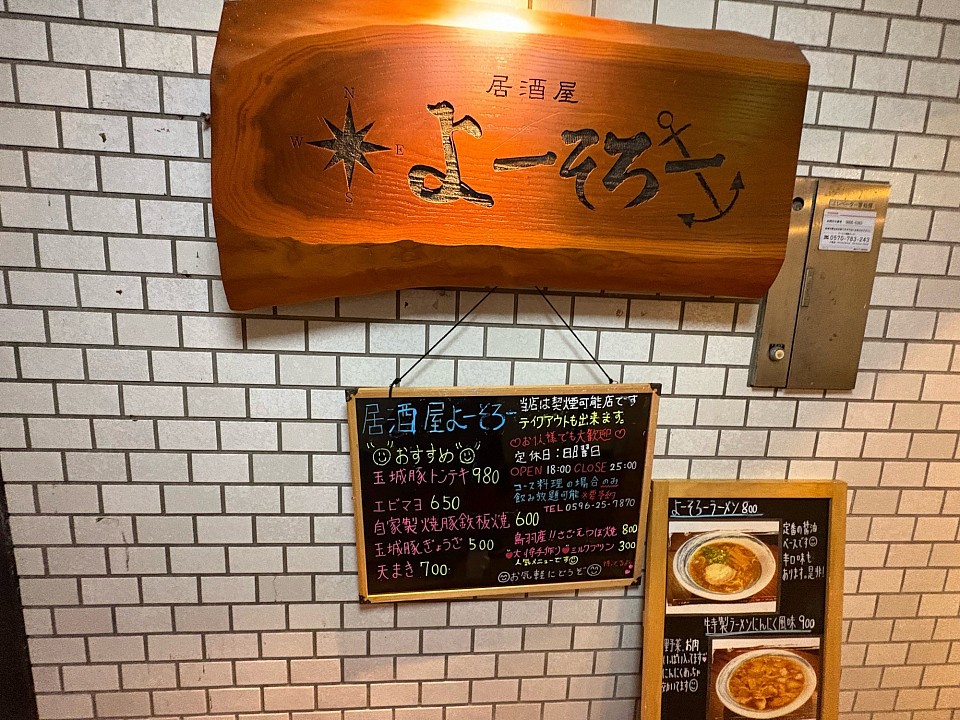 居酒屋
よーそろー
N
W
E
S
0570-783-243
居酒屋よーそろー
当店は喫煙可能店です
テイクアウトも出来ます。
♡お1人様でも大歓迎♡
定休日:日曜日
OPEN 18:00 CLOSE 25:00
コース料理の場合のみ
飲み放題可能 ※要予約
TEL 0596-25-7870
おすすめ
玉城豚トンテキ 980
エビマヨ 650
自家製焼豚鉄板焼 600
玉城豚ぎょうざ 500
天まき 700.
鳥羽産!!さざえつぼ焼 800
大将手作り♥ミルクプリン 300
人気メニューです
お気軽にどうぞ
よーそろーラーメン 800
定番の醤油
ベースです
辛口味も
あります。是非!
特製ラーメンにんにく風味 900
野菜、お肉
いっぱい入ってます
にんにくめっちゃ
きいてます